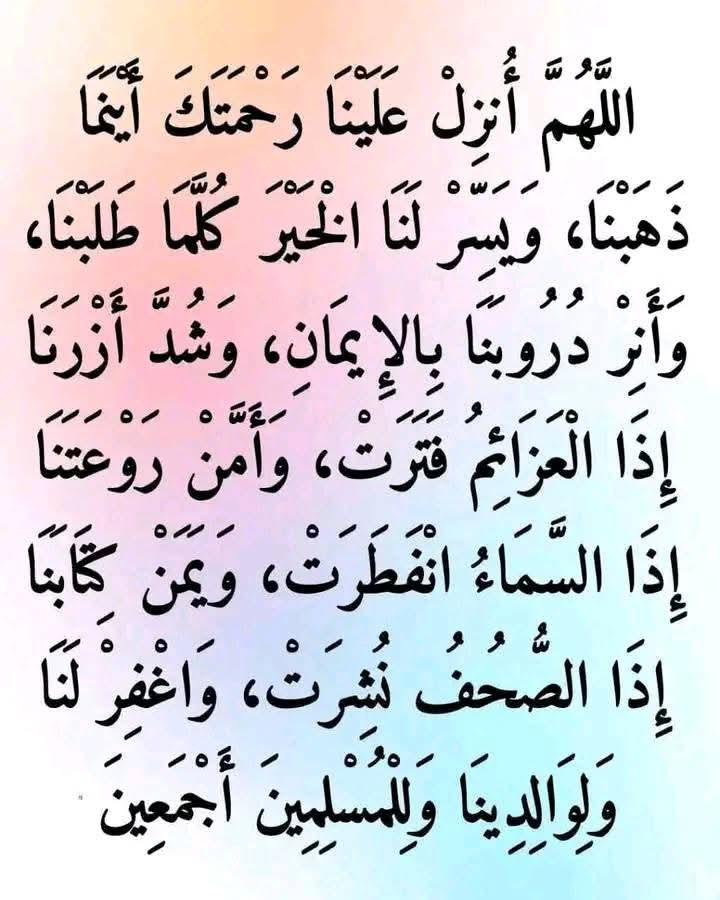 اللَّهُمَّ أَنزِلْ عَلَيْنَا رَحْمَتَكَ أَيْنَمَا
ذَهَبْنَا، وَيَسِّرْ لَنَا الْخَيْرَ كُلَّمَا طَلَبْنَا،
وَأَنِرْ دُرُوبَنَا بِالإِيمَانِ، وَشُدَّ أَزْرَنَا
إِذَا الْعَزَائِمُ فَتَرَتْ، وَأَمَّنْ رَوْعَتَنَا
إِذَا السَّمَاءُ انْفَطَرَتْ، وَيَمَنْ كِتَابَنَا
إِذَا الصُّحُفُ نُشِرَتْ، وَاغْفِرْ لَنَا
وَلِوَالِدِينَا وَلِلْمُسْلِمِينَ أَجْمَعِينَ